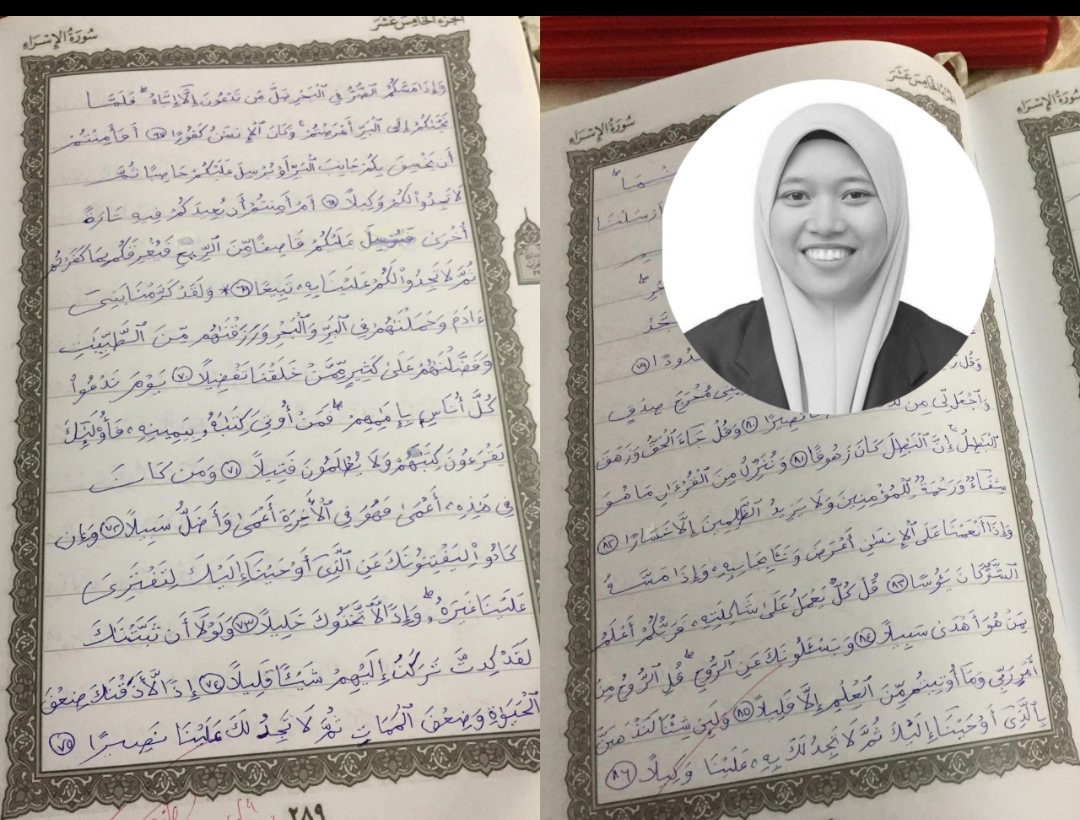 سُورَةُ الإِسْرَاءِ
الجزء الخامس عشر
وَإِذَا مَسَّكُمُ ٱلضُّرُّ فِى ٱلْبَحْرِ ضَلَّ مَن تَدْعُونَ إِلَّآ إِيَّاهُ ۖ فَلَمَّا
نَجَّىٰكُمْ إِلَى ٱلْبَرِّ أَعْرَضْتُمْ ۚ وَكَانَ ٱلْإِنسَٰنُ كَفُورًا ٦٧ أَفَأَمِنتُمْ
أَن يَخْسِفَ بِكُمْ جَانِبَ ٱلْبَرِّ أَوْ يُرْسِلَ عَلَيْكُمْ حَاصِبًا ثُمَّ
لَا تَجِدُوا۟ لَكُمْ وَكِيلًا ٦٨ أَمْ أَمِنتُمْ أَن يُعِيدَكُمْ فِيهِ تَارَةً
أُخْرَىٰ فَيُرْسِلَ عَلَيْكُمْ قَاصِفًا مِّنَ ٱلرِّيحِ فَيُغْرِقَكُم بِمَا كَفَرْتُمْ
ثُمَّ لَا تَجِدُوا۟ لَكُمْ عَلَيْنَا بِهِۦ تَبِيعًا ٦٩ * وَلَقَدْ كَرَّمْنَا بَنِىٓ
ءَادَمَ وَحَمَلْنَٰهُمْ فِى ٱلْبَرِّ وَٱلْبَحْرِ وَرَزَقْنَٰهُم مِّنَ ٱلطَّيِّبَٰتِ
وَفَضَّلْنَٰهُمْ عَلَىٰ كَثِيرٍ مِّمَّنْ خَلَقْنَا تَفْضِيلًا ٧٠ يَوْمَ نَدْعُوا۟
كُلَّ أُنَاسٍۭ بِإِمَٰمِهِمْ ۖ فَمَنْ أُوتِىَ كِتَٰبَهُۥ بِيَمِينِهِۦ فَأُو۟لَٰٓئِكَ
يَقْرَءُونَ كِتَٰبَهُمْ وَلَا يُظْلَمُونَ فَتِيلًا ٧١ وَمَن كَانَ
فِى هَٰذِهِۦٓ أَعْمَىٰ فَهُوَ فِى ٱلْأَخِرَةِ أَعْمَىٰ وَأَضَلُّ سَبِيلًا ٧٢ وَإِن
كَادُوا۟ لَيَفْتِنُونَكَ عَنِ ٱلَّذِىٓ أَوْحَيْنَآ إِلَيْكَ لِتَفْتَرِىَ
عَلَيْنَا غَيْرَهُۥ ۖ وَإِذًا لَّٱتَّخَذُوكَ خَلِيلًا ٧٣ وَلَوْلَآ أَن ثَبَّتْنَٰكَ
لَقَدْ كِدتَّ تَرْكَنُ إِلَيْهِمْ شَيْـًٔا قَلِيلًا ٧٤ إِذًا لَّأَذَقْنَٰكَ ضِعْفَ
ٱلْحَيَوٰةِ وَضِعْفَ ٱلْمَمَاتِ ثُمَّ لَا تَجِدُ لَكَ عَلَيْنَا نَصِيرًا ٧٥
٢٨٩
سُورَةُ الإِسْرَاءِ
أَرْسَلْنَا
وَقُل
وَٱجْعَل لِّى مِن مُخْرَجَ صِدْقٍ
نَّصِيرًا ٨٠ وَقُلْ جَآءَ ٱلْحَقُّ وَزَهَقَ
ٱلْبَٰطِلُ ۚ إِنَّ ٱلْبَٰطِلَ كَانَ زَهُوقًا ٨١ وَنُنَزِّلُ مِنَ ٱلْقُرْءَانِ مَا هُوَ
شِفَآءٌ وَرَحْمَةٌ لِّلْمُؤْمِنِينَ وَلَا يَزِيدُ ٱلظَّٰلِمِينَ إِلَّا خَسَارًا ٨٢
وَإِذَآ أَنْعَمْنَا عَلَى ٱلْإِنسَٰنِ أَعْرَضَ وَنَـَٔا بِجَانِبِهِۦ وَإِذَا مَسَّهُ
ٱلشَّرُّ كَانَ يَـُٔوسًا ٨٣ قُلْ كُلٌّ يَعْمَلُ عَلَىٰ شَاكِلَتِهِۦ فَرَبُّكُمْ أَعْلَمُ
بِمَنْ هُوَ أَهْدَىٰ سَبِيلًا ٨٤ وَيَسْـَٔلُونَكَ عَنِ ٱلرُّوحِ ۖ قُلِ ٱلرُّوحُ مِنْ
أَمْرِ رَبِّى وَمَآ أُوتِيتُم مِّنَ ٱلْعِلْمِ إِلَّا قَلِيلًا ٨٥ وَلَئِن شِئْنَا لَنَذْهَبَنَّ
بِٱلَّذِىٓ أَوْحَيْنَآ إِلَيْكَ ثُمَّ لَا تَجِدُ لَكَ بِهِۦ عَلَيْنَا وَكِيلًا ٨٦